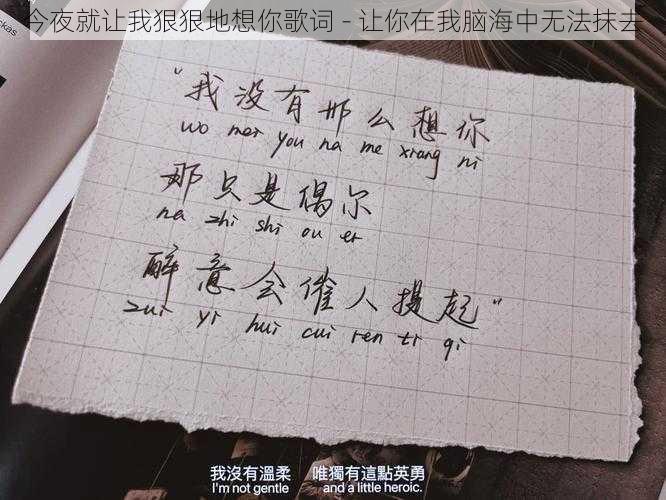 今夜就让我狠狠地想你歌词 - 让你在我脑海中无法抹去
"我没有那么想你
wo mei you na me xiang ni
那只是偶尔
na zhi shi ou er
醉意会催人提起"
zui yi hui cui ren ti qi
我沒有溫柔 唯獨有這點英勇
I'm not gentle and a little heroic.